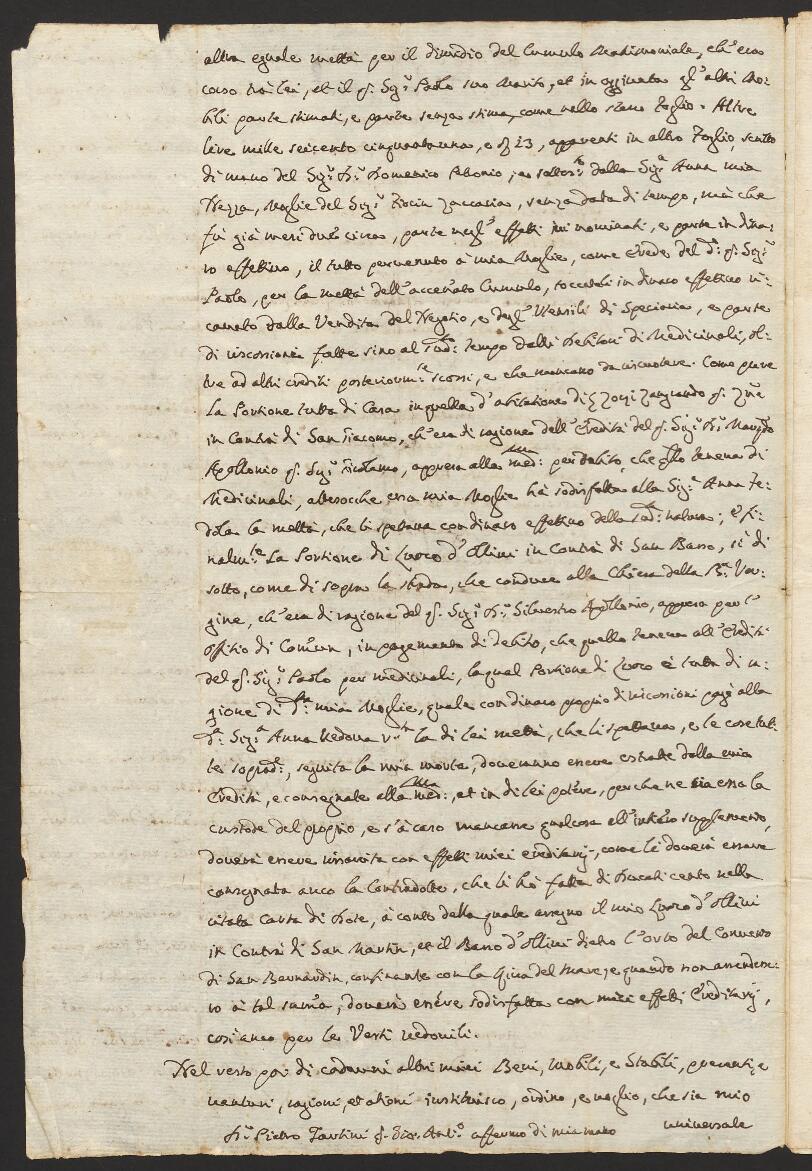 altra eguale mettà per il dimedio del Cumulo Matrimoniale, ch'era
corso trà lei, et il q. Sig.r Paolo suo Marito, et in aggiunta gl'altri Mo-
bili parte stimati, e parte senza stima, come nello stesso Foglio. Altre
lire mille seicento cinquantauna, e 23, apparenti in altro Foglio, scritto
di mano del Sig.r D.r Domenico, e sottos.to dalla Sig.a Anna mia
Nezza, Moglie del Sig.r Zaccaria, senza data di tempo, mà che
fù già mesi due circa, parte negl'effetti ivi nominati, e parte in dina-
ro effettivo, il tutto pervenuto à mia Moglie, come Erede del d.o q. Sig.r
Paolo, per la mettà dell'accennato Cumulo, toccatoli in dinaro effettivo ri-
cavato dalla Vendita del Negotio, e degl'Utensili di Speciaria, e parte
di riscossioni fatte sino al sud.o tempo dalli Debitori di Medicinali, ol-
tre ad altri crediti posteriorm.te scossi, e che mancano da riscuotere. Come pure
La Portione tutta di Casa in quella d'abitatione di Zangrando q. Zue
in Contrà di San Giacomo, ch'era di ragione dell'Eredità del q. Sig.r D.r
Apollonio q. Sig.r Girolamo, appresa alla med.ma per debito, che q.llo teneva di
Medicinali, attesocche essa mia Moglie hà sodisfatta alla Sig.a Anna Ve-
dova la mettà, che li spettava con dinaro effettivo della sud.a natura; E fi-
nalm.te La Portione di Luoco d'Ollivi in Contrà di San Basso, sì di
sotto, come di sopra la strada, che conduce alla Chiesa della B.a Ver-
gine, ch'era di ragione del q. Sig.r D.r Silvestro Apollonio, appresa per l'
Offitio di Comun, in pagamento di debito, che quello teneva all'Eredità
del q. Sig.r Paolo per medicinali, la qual Portione di Luoco è tutta di ra-
gione di d.ta mia Moglie, quale con dinaro proprio di riscossioni pagò alla
d.a Sig.a Anna Vedova la di lei mettà, che li spettava, e le cose tut-
te soprad.e, seguita la mia morte, doveranno essere estratte dalla mia
Eredità, e consegnate alla med.ma, et in di lei potere, perche ne sia essa la
custode del proprio, e s'à caso mancasse qualcosa all'intiero supplemento,
doverà essere rissarcita con effetti miei ereditarij, come le doverà essere
consegnata anco la Contradotte, che li hò fatta di Ducati cento nella
citata Carta di Dote, à conto della quale assegno il mio Luoco d'Ollivi
in Contrà di San Martin, et il Basso d'Ollivi dietro l'Orto del Convento
di San Bernardin, confinante con la Riva del Mare, e quando non arrendesse-
ro à tal summa, doverà essere sodisfatta con miei effetti Ereditarij,
così anco per le Vesti vedovili.
Nel resto poi di cadauni altri miei Beni, Mobili, e Stabili, presenti, e
venturi, ragioni, et ationi instituisco, ordino, e voglio, che sia mio
D.r Pietro Tartini q. Gio: Ant.o affermo di mia mano universale